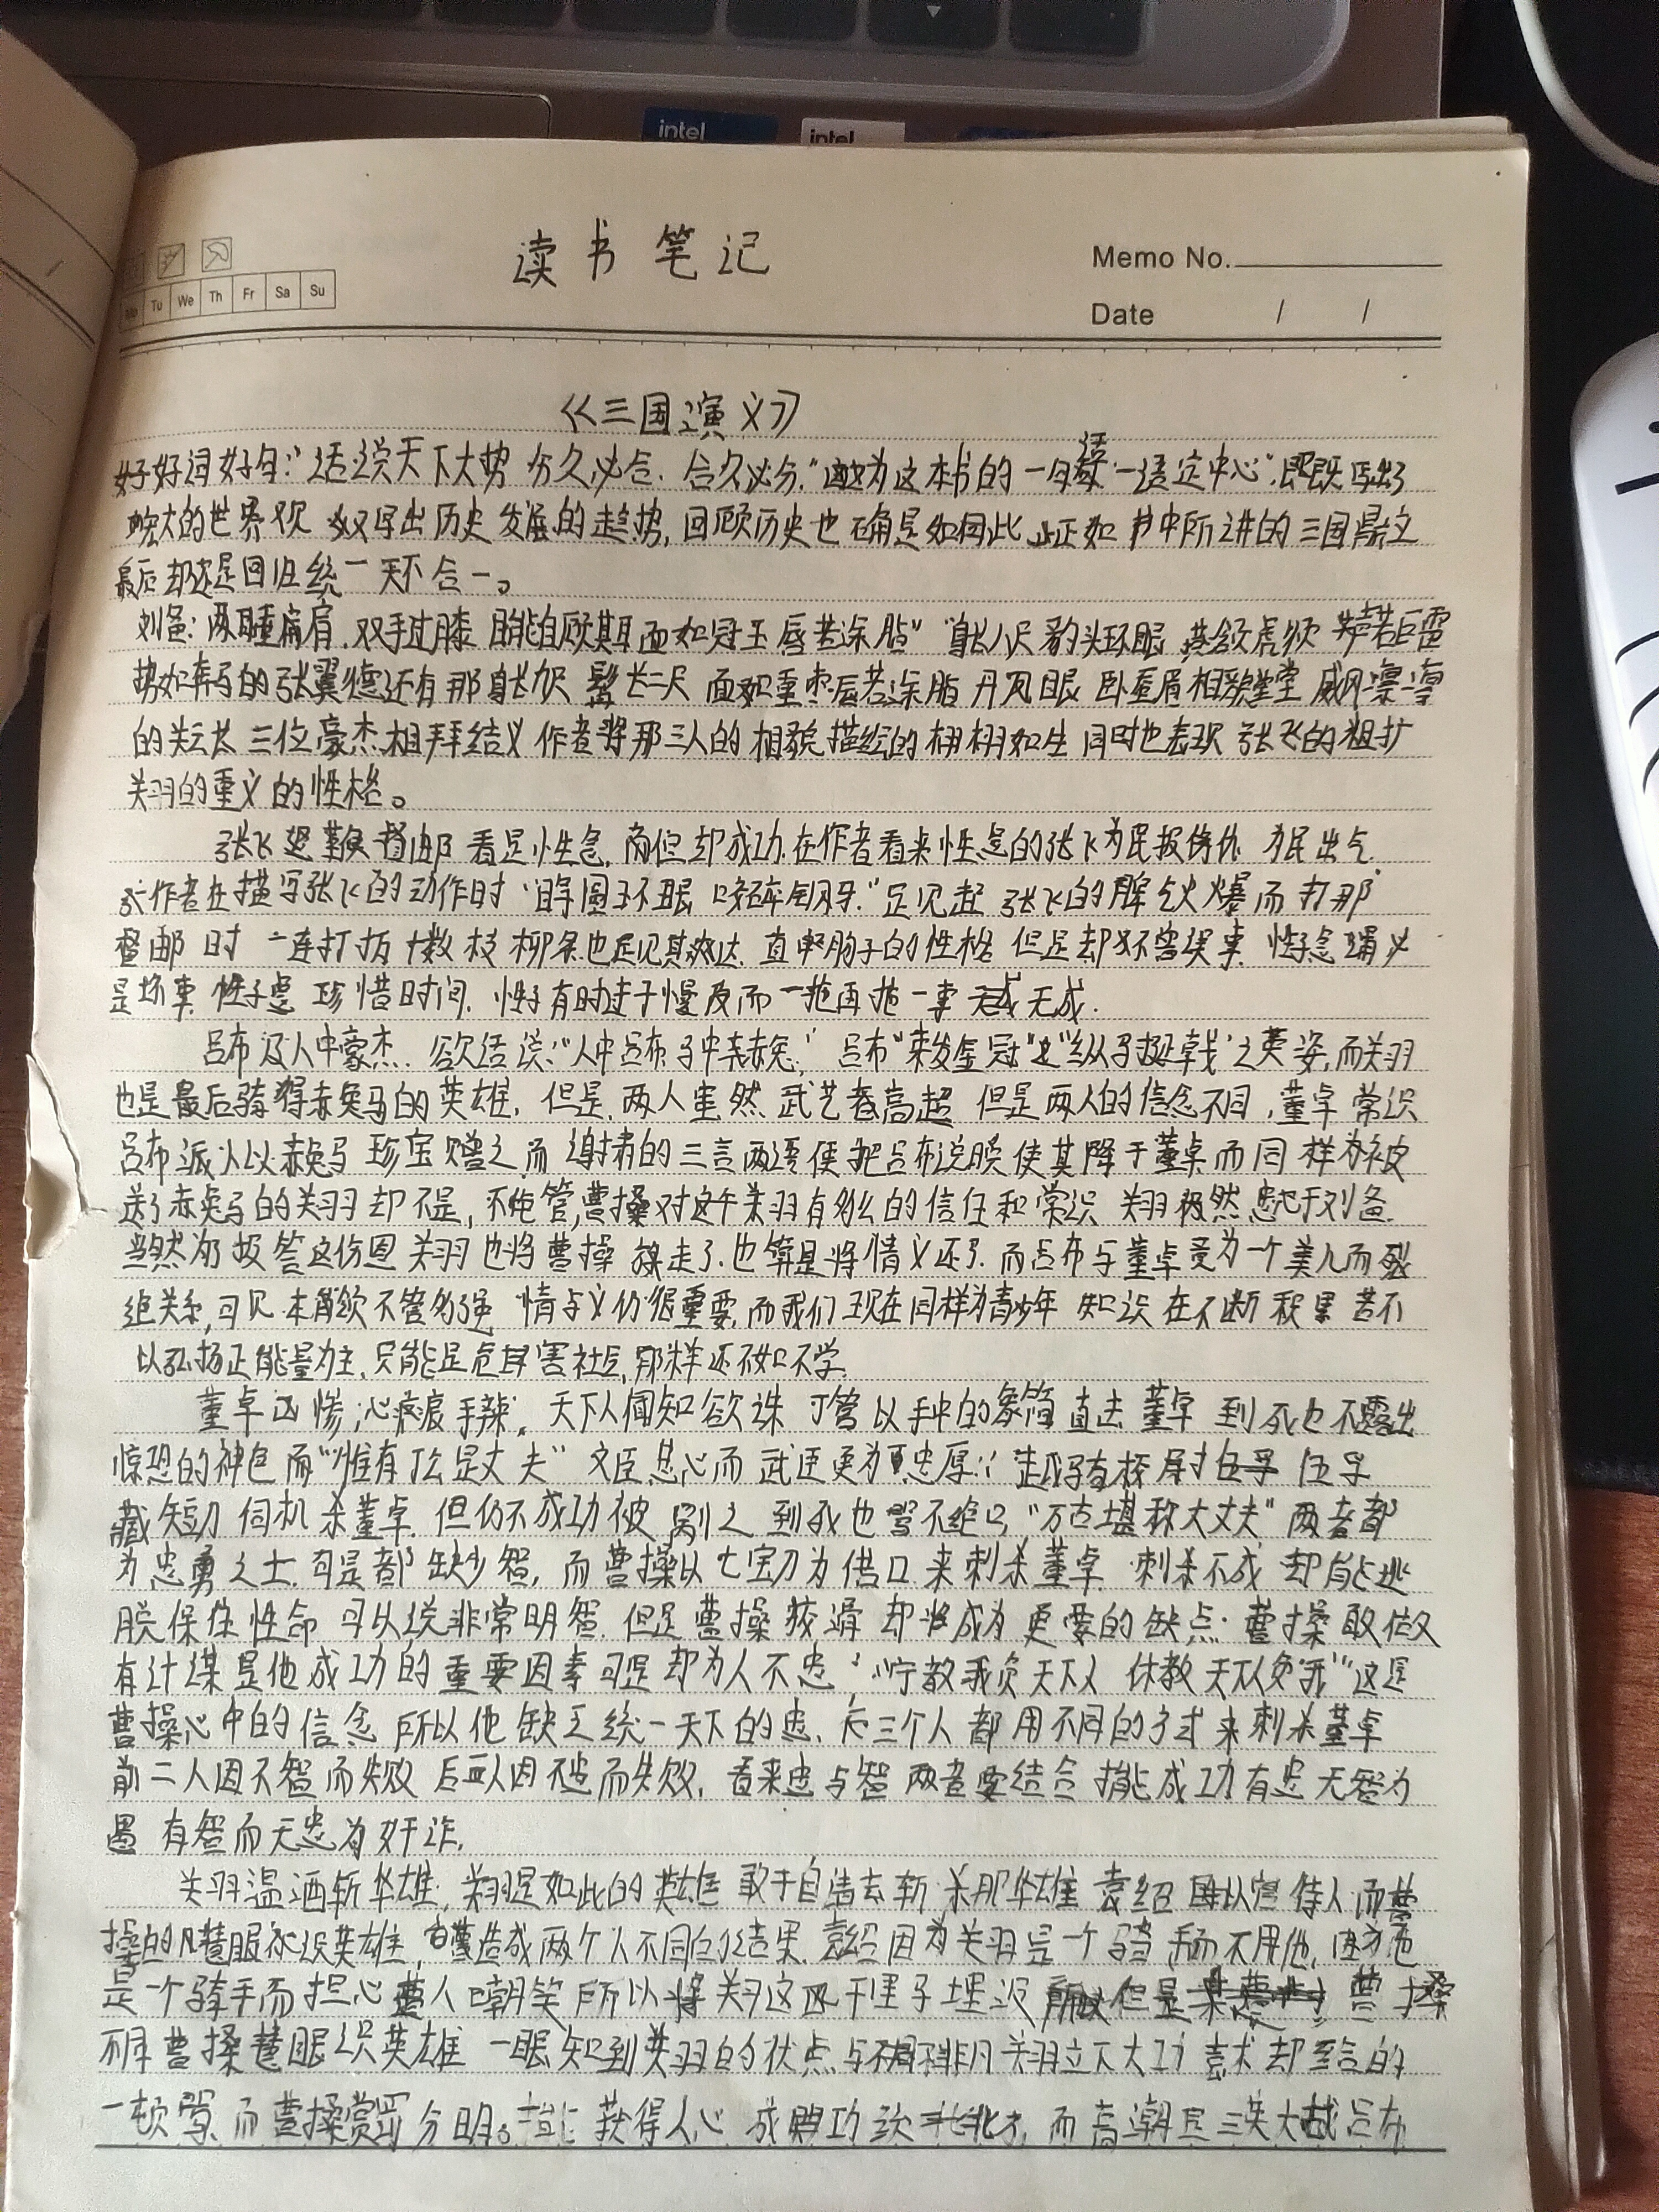 intel
intel
读书笔记
Memo No.
Tu We Th Fr Sa Su
Date / /
《三国演义》
好好词好句:"话说天下大势 分久必合.合久必分."成为这本书的一句话"一语定中心".既写出了
宏大的世界观 又写出历史发展的趋势,回顾历史也确是如此 正如书中所讲的三国鼎立
最后却还是回归统一 天下合一。
刘备:两耳垂肩.双手过膝 目能自顾其耳 面如冠玉 唇若涂脂""身长八尺 豹头环眼 燕颔虎须 声若巨雷
势如奔马的张翼德还有那身长九尺 髯长二尺 面如重枣唇若涂脂 丹凤眼 卧蚕眉 相貌堂堂 威风凛凛
的关云长 三位豪杰相拜结义 作者将那三人的相貌描绘的栩栩如生 同时也表现 张飞的粗犷
关羽的重义的性格。
张飞 鞭督邮 看是性急 但却成功.在作者看来性急的张飞为民报仇 为民出气
作者在描写张飞的动作时"睁圆环眼 咬碎钢牙."足见 张飞的脾气火爆而打那
督邮时 一连打折十数枝柳条也足见其 直 肠子的性格 但是却不曾误事 性子急
是坏事 性子急 珍惜时间. 性子有时过于慢反而一拖再拖一事无成.
吕布 人中豪杰. 话说:"人中吕布马中赤兔," 吕布"束发金冠" "纵马挺戟"之英姿,而关羽
也是最后骑得赤兔马的英雄, 但是,两人虽然 武艺 高超 但是两人的信念不同,董卓常识
吕布派人以赤兔马 珍宝赠之 而 肃的三言两语便把吕布说服使其降于董卓 而同样为被
送了赤兔马的关羽却不是, 不 管,曹操对这个关羽有多么的信任和常识 关羽 然忠于刘备.
当然为报答这份恩 关羽也将曹操放走了.也算是将情义还了.而吕布与董卓 为一个美人而
绝关系,可见本领 不管多强 情与义仍很重要,而我们现在同样为青少年 知识在不断积累 若不
以弘扬正能量为主,只能是危害社会,那样还不如不学.
董卓凶惨,心狠手辣, 天下人闻知欲诛 丁管以手中的象简直击董卓 到死也不露出
惊恐的神色 而"惟有丁公是丈夫" 文臣忠心而武 更为忠厚: 越骑校尉 伍孚
藏短刀 伺机杀董卓 但仍不成功被剐之 到死也骂不绝口"万古堪称大丈夫"两者都
为忠勇之士.可是都缺少智, 而曹操以七宝刀为借口来刺杀董卓 刺杀不成 却能逃
脱保住性命 可以说非常明智. 但是曹操狡猾 却将成为更要的缺点: 曹操敢做
有计谋是他成功的重要因素可是却为人不忠,"宁教我负天下人 休教天下人负我"这是
曹操心中的信念 所以他缺乏统一天下的忠, 三个人都用不同的方式来刺杀董卓
前二人因不智而失败 后一人因不忠而失败. 看来忠与智 两者要结合 才能成功 有忠无智为
愚 有智而无忠为奸诈.
关羽温酒斩华雄, 关羽是如此的英雄 敢于自告去斩杀那华雄 袁绍 以 待人 而曹
操的 慧眼 识英雄, 造成两个人不同的结果. 袁绍因为关羽是一个骑手而不用他, 因为他
是一个骑手而担心曹人嘲笑 所以将关羽这匹千里马埋没 但是 曹操
不同 曹操慧眼识英雄 一眼知到关羽的优点与不同非凡 关羽立下大功 袁术却 给的
一顿骂. 而曹操赏罚分明。 能获得人心 成 功 , 而高潮是三英大战吕布